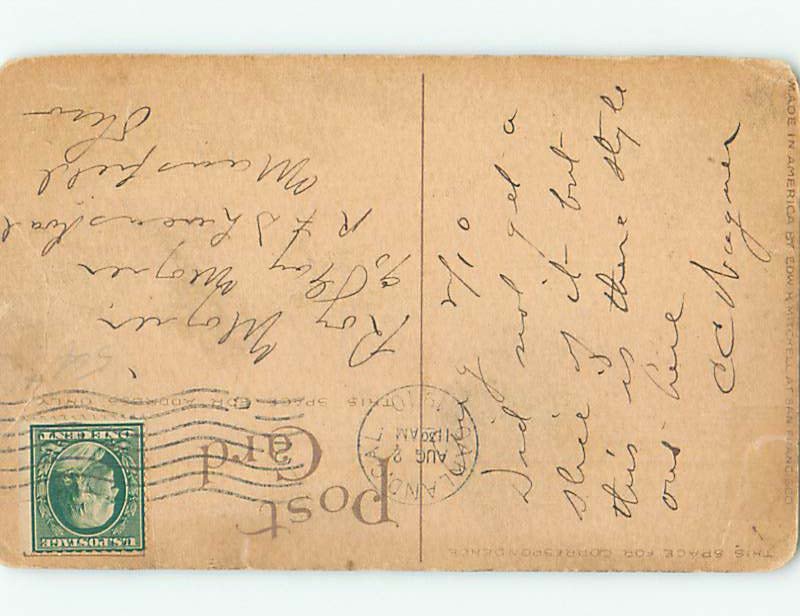 THIS SPACE FOR CORRESPONDENCE
Post
Card
THIS SPACE FOR ADDRESS ONLY
MADE IN AMERICA BY EDW. H. MITCHELL AT SAN FRANCISCO
U.S. POSTAGE
ONE CENT
OAKLAND, CAL.
AUG 2
1130AM
1910
Roy
Mansfield
Ohio
Aug
2/10
Did not get a
slice of it but
this is there style
out here
CC Wagner